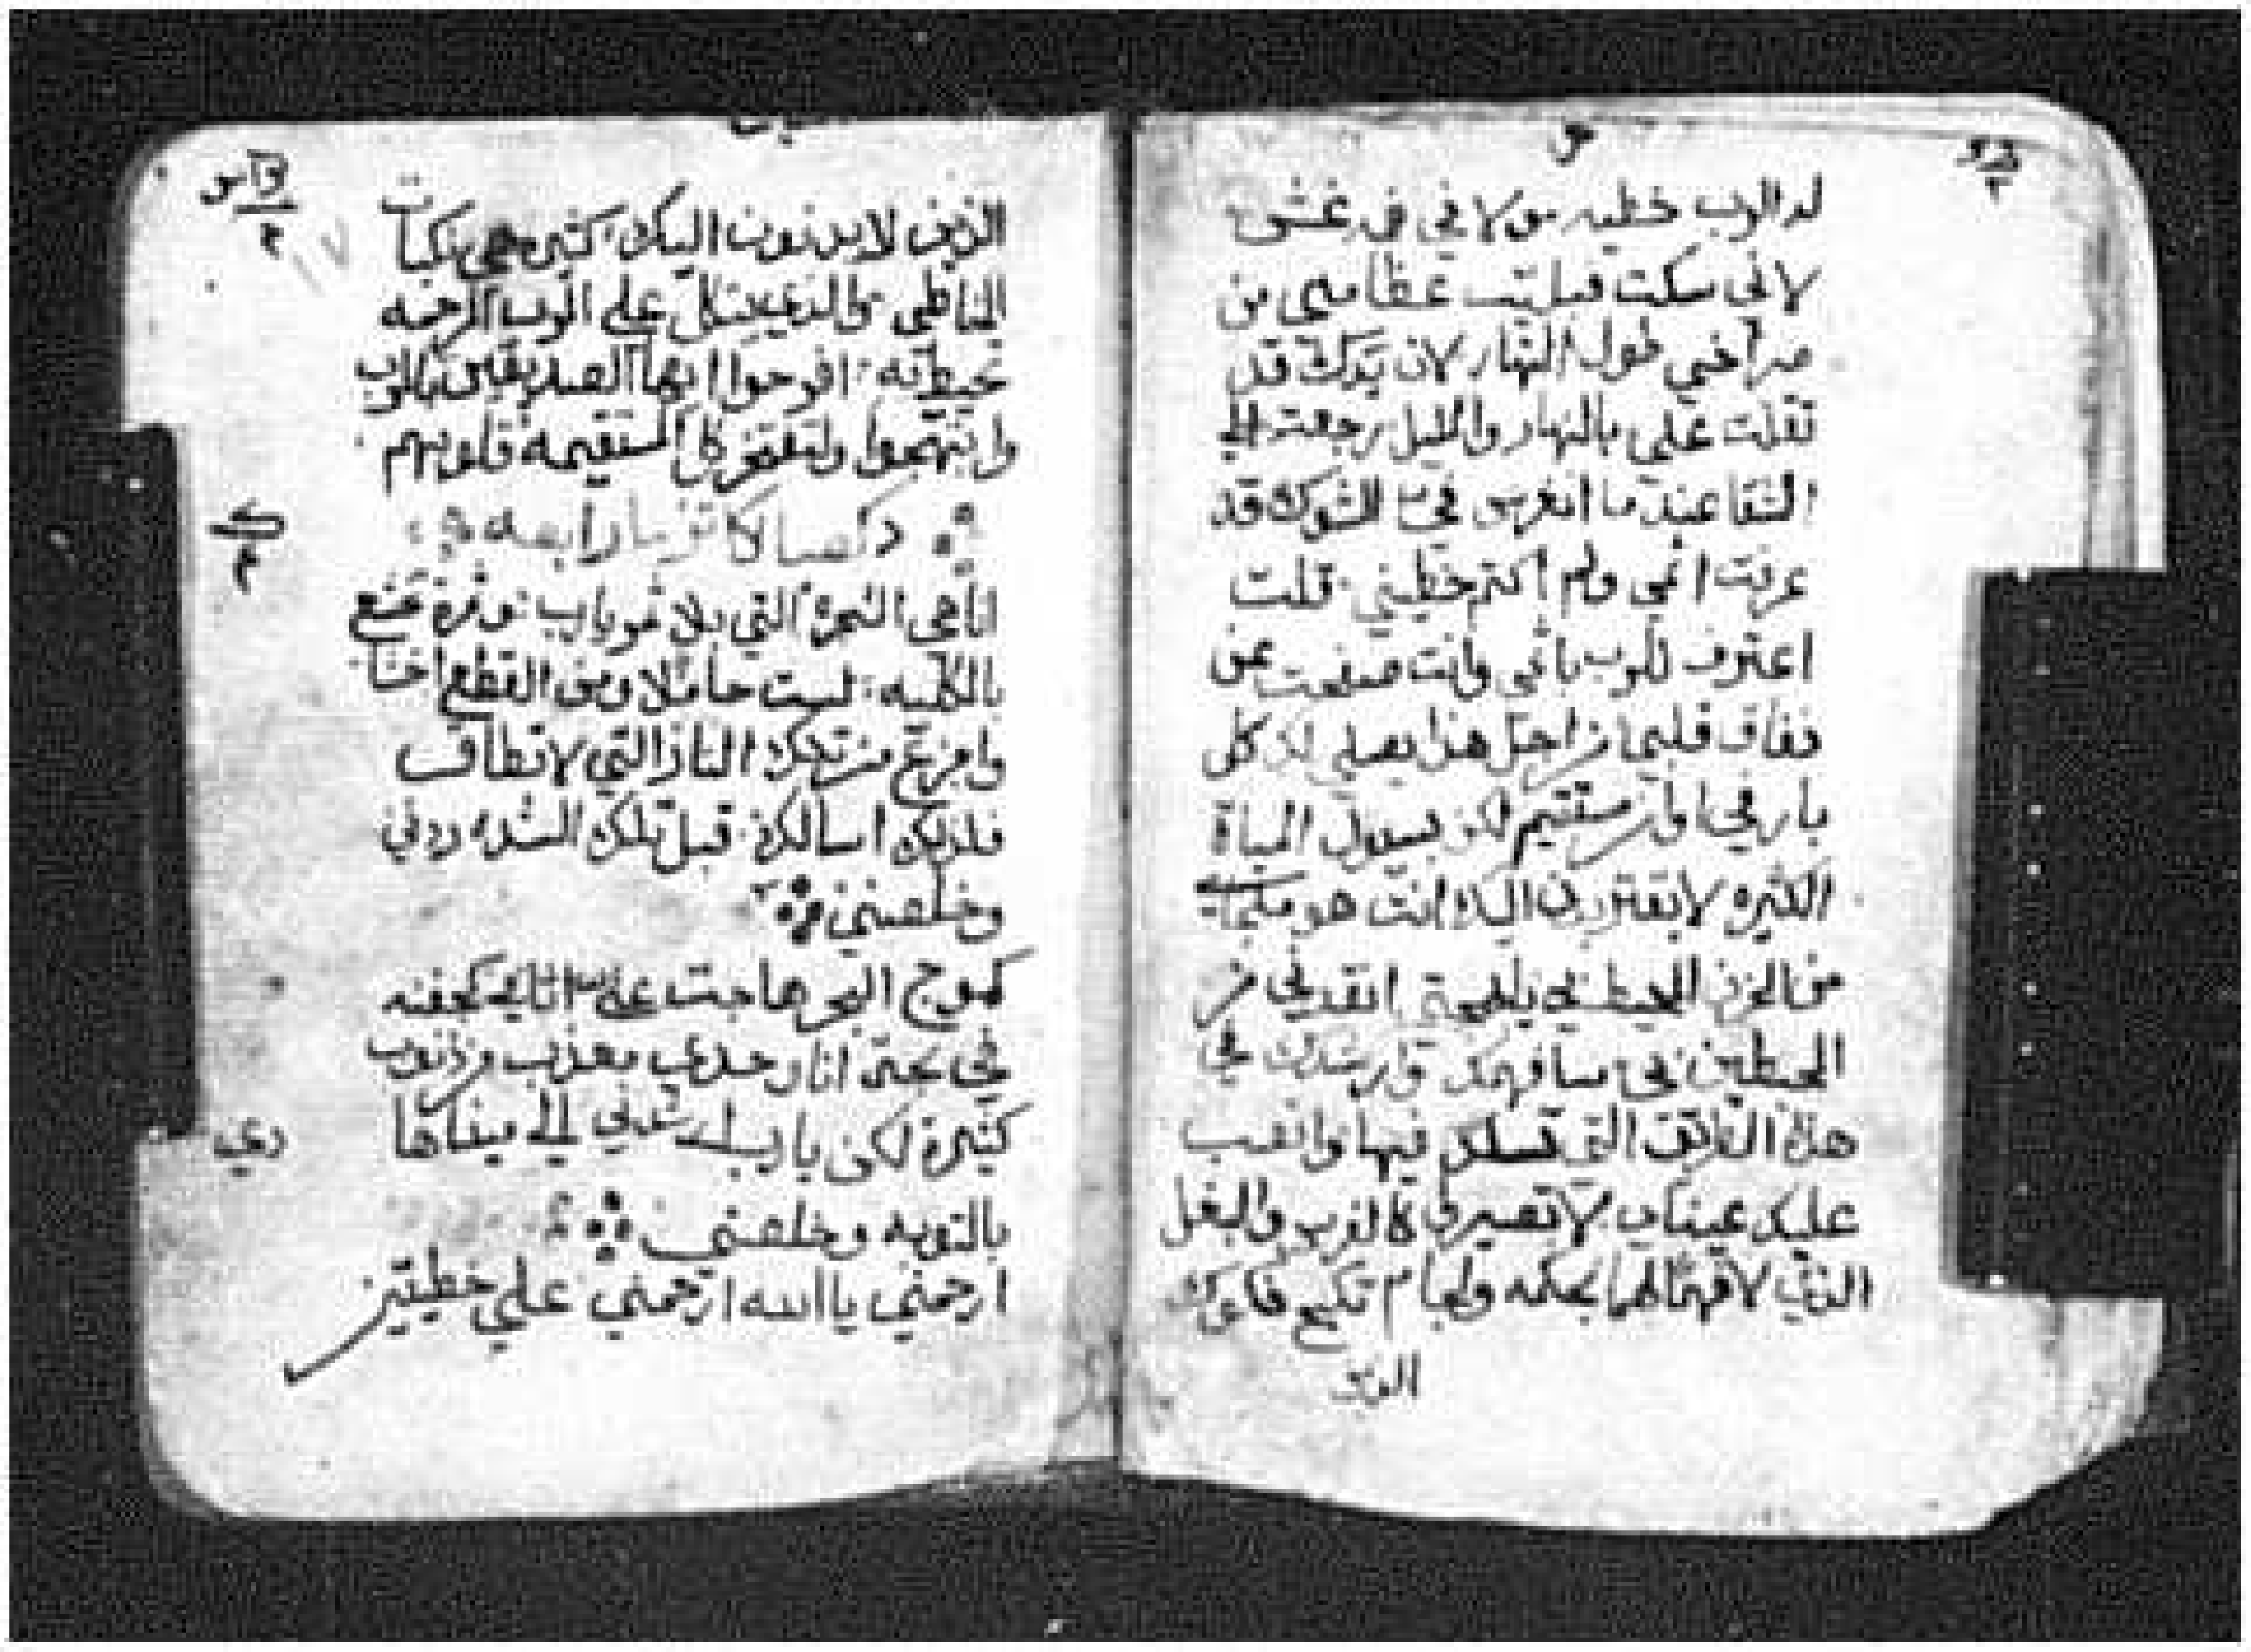 له الرب خطيه ولا في فيه غش
لاني سكت فبليت عظامي من
صراخي طول النهار لان يدك قد
ثقلت علي بالنهار والليل رجعت الي
الشقا عندما انغرس في الشوك قد
عرفت اثمي ولم اكتم خطيتي قلت
اعترف للرب باثمي وانت صفحت عن
نفاق قلبي من اجل هذا يصلي لك كل
بار في اوان مستقيم لكن بسيول المياة
الكثيره لا يقتربون اليك انت هو ملجاي
من الحزن المحيط بي يا بهجتي انقدني من
المحيطين بي سافهمك وارشدك في
هذة الطريق التي تسلك فيها واثبت
عليك عيناي لا تصير كالفرس والبغل
الذي لا فهم لهما بحكمه ولجام تكبح فكوك
الذين
الذين لا يدنون اليك كثيره هي نكبات
الخاطي والذي يتكل علي الرب الرحمه
تحيط به افرحوا ايها الصديقين بالرب
وابتهجوا وافتخروا يا مستقيمة قلوبهم
دكصا كاتزما رابعه
انا هي الشجرة التي بلا ثمر يارب وثمرة تخشع
بالكليه لست حاملا ومن القطع اخشا
وافزع من تلك النار التي لا تطاف
فلذلك اسالك قبل تلك الشده ردني
وخلصني
كموج البحر هاجت علي اثامي كجفنه
في بحر انا وحدي معذب من ذنوب
كثيرة لكن يا رب ارشدني الي ميناها
بالتوبه وخلصني
ارحمني يا الله ارحمني علي خطيتين